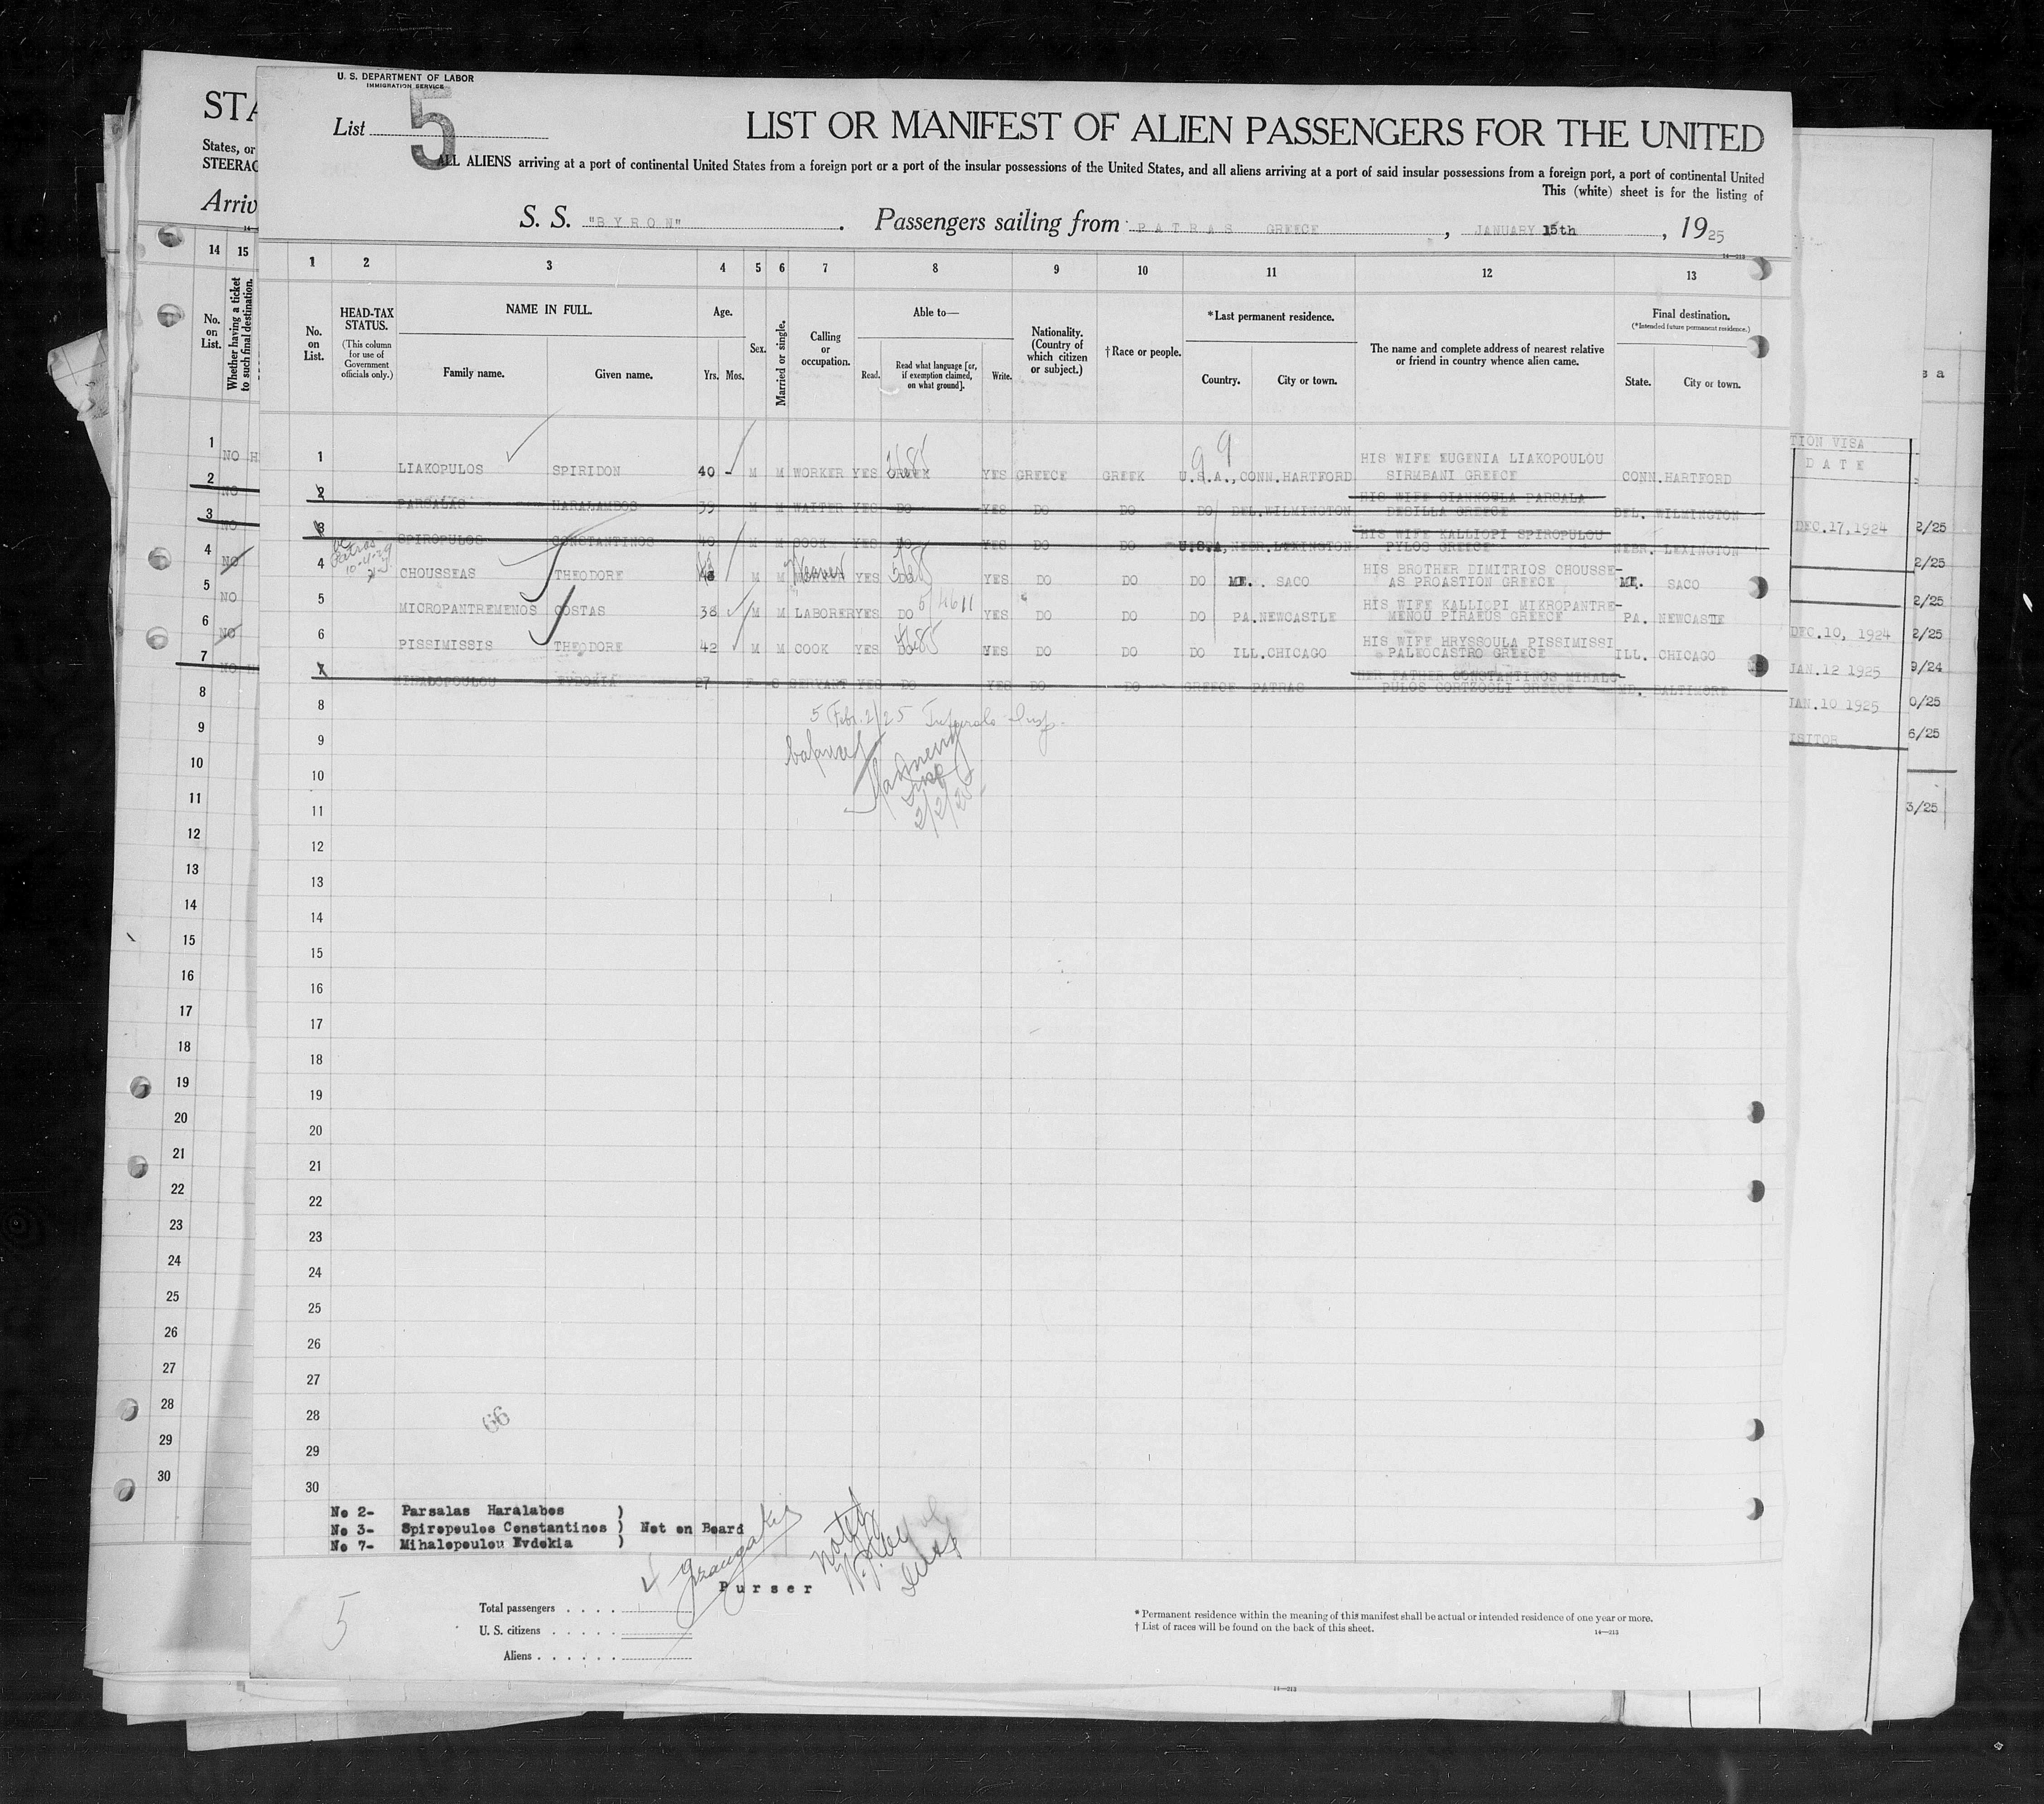 U. S. DEPARTMENT OF LABOR
IMMIGRATION SERVICE
STA
List 5
LIST OR MANIFEST OF ALIEN PASSENGERS FOR THE UNITED
States, or
STEERAG
ALL ALIENS arriving at a port of continental United States from a foreign port or a port of the insular possessions of the United States, and all aliens arriving at a port of said insular possessions from a foreign port, a port of continental United
This (white) sheet is for the listing of
Arriv
S. S. "BYRON". Passengers sailing from PATRAS GREECE, JANUARY 15th, 1925
14—213
14 15
1 2 3 4 5 6 7 8 9 10 11 12 13
No. on List.
Whether having a ticket to such final destination.
No. on List.
HEAD-TAX STATUS.
(This column for use of Government officials only.)
NAME IN FULL.
Family name. Given name.
Age.
Yrs. Mos.
Sex.
Married or single.
Calling or occupation.
Able to—
Read. Read what language [or, if exemption claimed, on what ground]. Write.
Nationality. (Country of which citizen or subject.)
†Race or people.
*Last permanent residence.
Country. City or town.
The name and complete address of nearest relative or friend in country whence alien came.
Final destination.
(*Intended future permanent residence.)
State. City or town.
HIS WIFE EUGENIA LIAKOPOULOU
1 LIAKOPULOS SPIRIDON 40 - M M WORKER YES GREEK YES GREECE GREEK U.S.A., CONN.HARTFORD SIRMBANI GREECE CONN.HARTFORD
HIS WIFE GIANNOULA PARSALA
2 PARSALAS HARALAMBOS 39 M M WAITER YES DO YES DO DO DO DEL.WILMINGTON DESILLA GREECE DEL. WILMINGTON
HIS WIFE KALLIOPI SPIROPULOU
3 SPIROPULOS CONSTANTINOS 40 M M COOK YES DO YES DO DO U.S.A, NEBR.LEXINGTON PYLOS GREECE NEBR. LEXINGTON
HIS BROTHER DIMITRIOS CHOUSSE-
4 CHOUSSEAS THEODORE M M Weaver YES DO YES DO DO DO ME. SACO AS PROASTION GREECE ME. SACO
HIS WIFE KALLIOPI MIKROPANTRE-
5 MICROPANTREMENOS COSTAS 38 M M LABORER YES DO YES DO DO DO PA.NEWCASTLE MENOU PIRAEUS GREECE PA. NEWCASTLE
HIS WIFE HRYSSOULA PISSIMISSI
6 PISSIMISSIS THEODORE 42 M M COOK YES DO YES DO DO DO ILL.CHICAGO PALEOCASTRO GREECE ILL. CHICAGO
HER FATHER CONSTANTINOS MIHALO-
7 MIHALOPOULOU EVDOKIA 27 F S SERVANT YES DO YES DO DO GREECE PATRAS PULOS CORTZOGLI GREECE MD. BALTIMORE
99
Patras
10-4-29
5/4611
8
5 Febr. 2/25 Insp.
9
10
Insp
2/2/25
11
12
13
14
15
16
17
18
19
20
21
22
23
24
25
26
27
28
29
30
66
1 NO H
2 NO
3 NO
4 NO
5 NO
6 NO
7 NO H
8
9
10
11
12
13
14
15
16
17
18
19
20
21
22
23
24
25
26
27
28
29
30
TION VISA
DATE
DEC.17,1924 2/25
2/25
2/25
DEC.10, 1924 2/25
JAN.12 1925 9/24
JAN.10 1925 0/25
ISITOR 6/25
3/25
s a
No 2- Parsalas Haralabos )
No 3- Spiropoulos Constantinos ) Not on Board
No 7- Mihalopoulou Evdokia )
Purser
noted
5
Total passengers
U. S. citizens
Aliens
* Permanent residence within the meaning of this manifest shall be actual or intended residence of one year or more.
† List of races will be found on the back of this sheet.
14—213
14—213